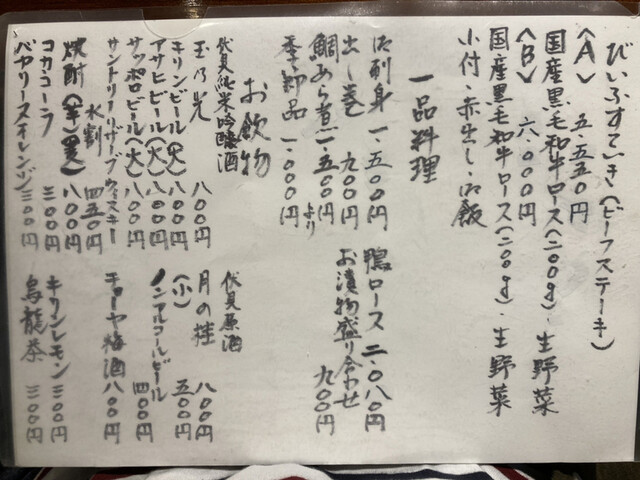 びいふすていき(ビーフステーキ)
(A) 五、五五〇円
国産黒毛和牛ロース(二〇〇g)・生野菜
(B) 六、〇〇〇円
国産黒毛和牛ロース(二〇〇g)・生野菜
小付・赤出し・御飯
一品料理
御刺身 一、五〇〇円
鴨ロース 二、〇八〇円
出し巻 九〇〇円
お漬物盛り合わせ 九〇〇円
鯛あら煮 一、五〇〇円より
季節品 一、〇〇〇円
お飲物
伏見純米吟醸酒
玉乃光 八〇〇円
伏見原酒
月の桂 八〇〇円
キリンビール(大) 八〇〇円
(小) 五〇〇円
アサヒビール(大) 八〇〇円
ノンアルコールビール 四〇〇円
サッポロビール(大) 八〇〇円
サントリーリザーブウィスキー
水割 四五〇円
チョーヤ梅酒 八〇〇円
焼酎(芋)(麦) 八〇〇円
コカコーラ 三〇〇円
キリンレモン 三〇〇円
バヤリースオレンジ 三〇〇円
烏龍茶 三〇〇円